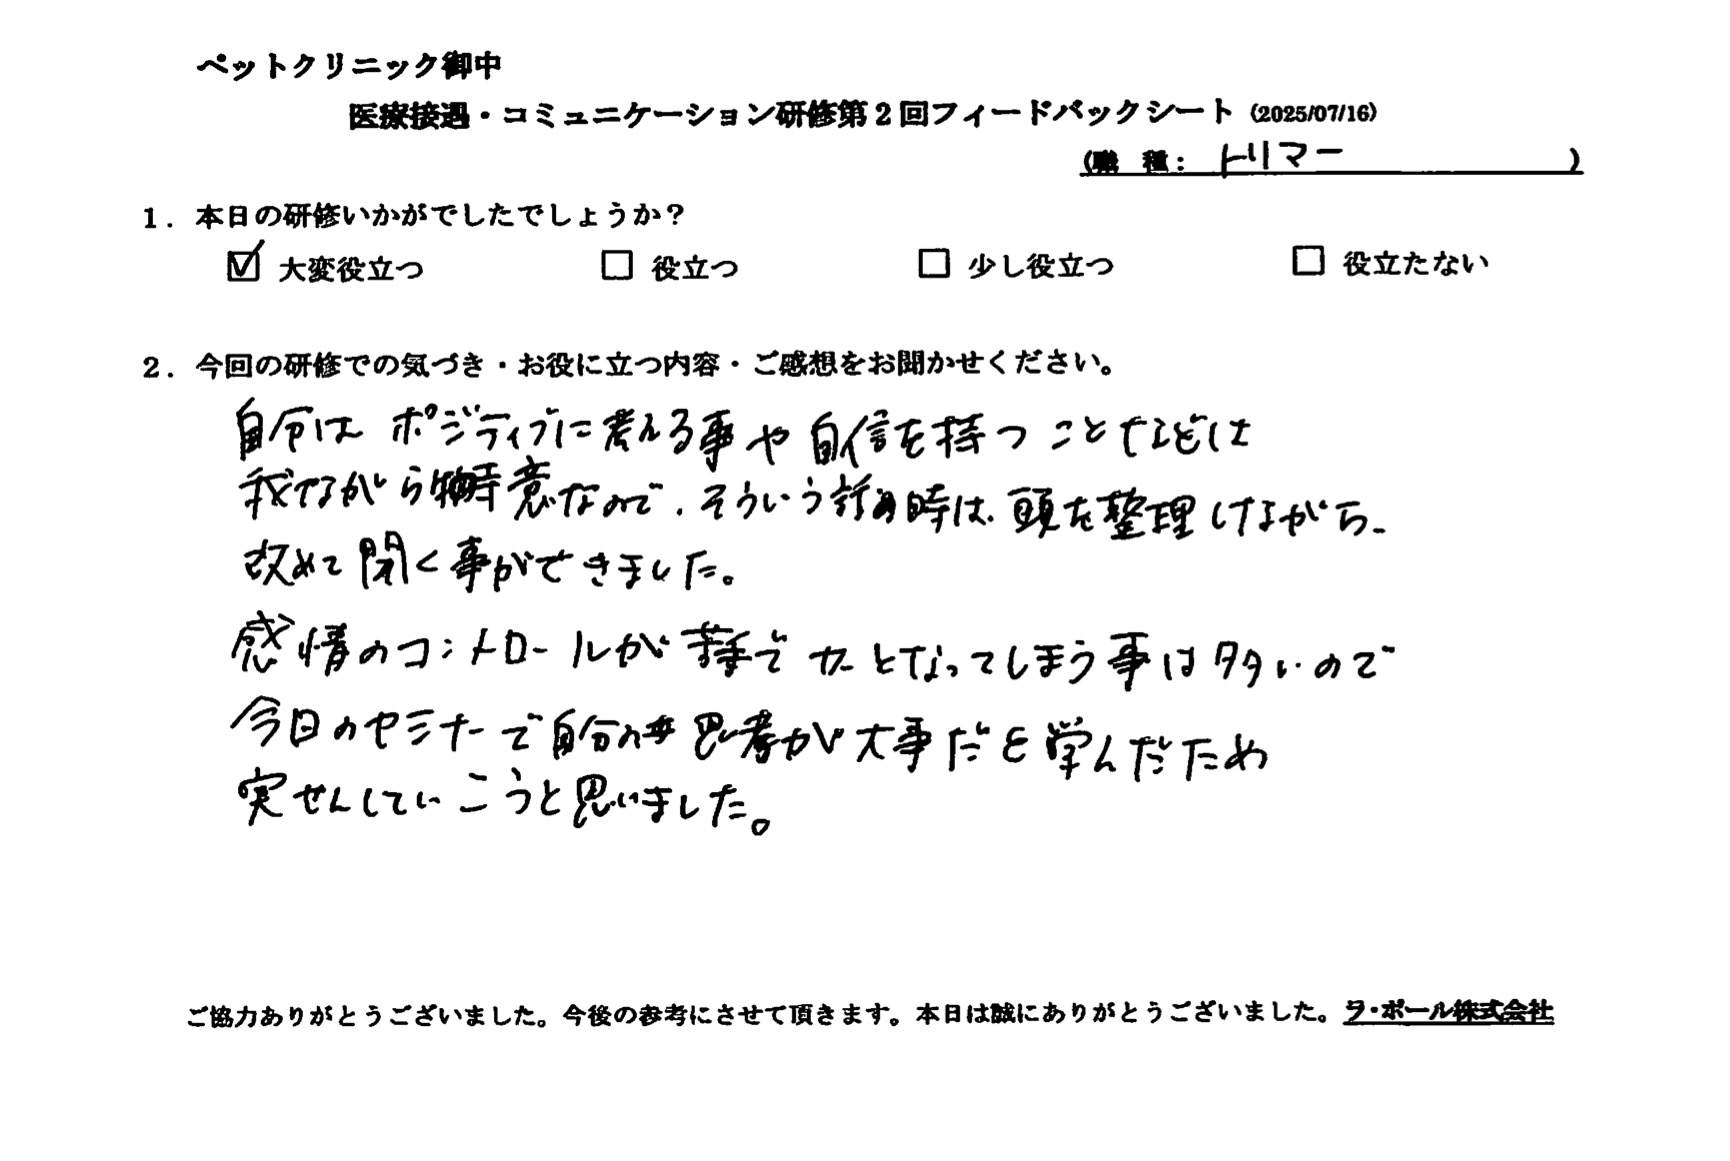 ペットクリニック御中
医療接遇・コミュニケーション研修第2回フィードバックシート (2025/07/16)
(職 種: トリマー )
1. 本日の研修いかがでしたでしょうか?
☑ 大変役立つ □ 役立つ □ 少し役立つ □ 役立たない
2. 今回の研修での気づき・お役に立つ内容・ご感想をお聞かせください。
自分は ポジティブに考える事や自信を持つことなどは
我ながら得意なので、そういう話の時は、頭を整理しながら、
改めて聞く事ができました。
感情のコントロールが苦手で カーとなってしまう事は多いので
今日のセミナーで自分の 思考が大事だと学んだため
実せんしていこうと思いました。
ご協力ありがとうございました。今後の参考にさせて頂きます。本日は誠にありがとうございました。ラ・ポール株式会社